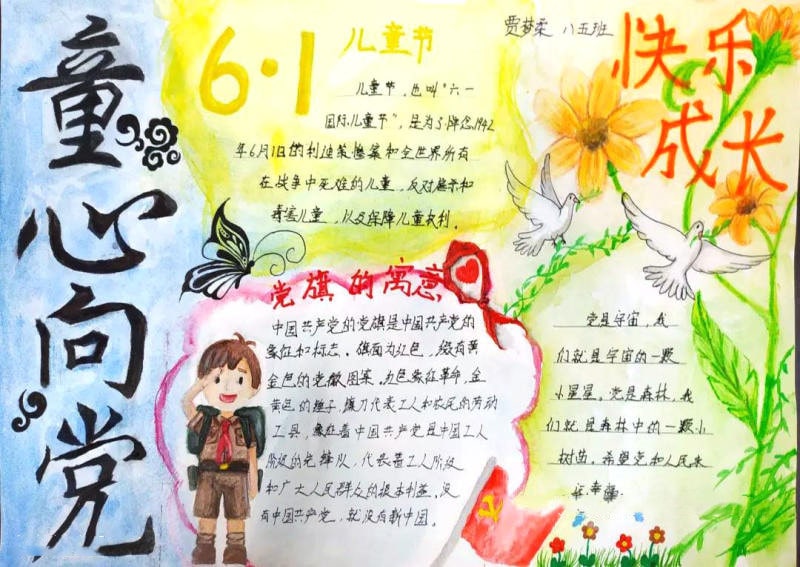 童心向党
6·1
儿童节
贾梦柔 八五班
快乐
成长
儿童节，也叫“六一
国际儿童节”，是为了悼念1942
年6月1日的利迪策惨案和全世界所有
在战争中死难的儿童，反对屠杀和
毒害儿童，以及保障儿童权利。
党旗的寓意
中国共产党的党旗是中国共产党的
象征和标志。旗面为红色，缀有黄
金色的党徽图案。红色象征革命，金
黄色的锤子，镰刀代表工人和农民的劳动
工具，象征着中国共产党是中国工人
阶级的先锋队，代表着工人阶级
和广大人民群众的根本利益。没
有中国共产党，就没有新中国。
党是宇宙，我
们就是宇宙的一颗
小星星。党是森林，我
们就是森林中的一颗小
树苗。希望党和人民永
远幸福